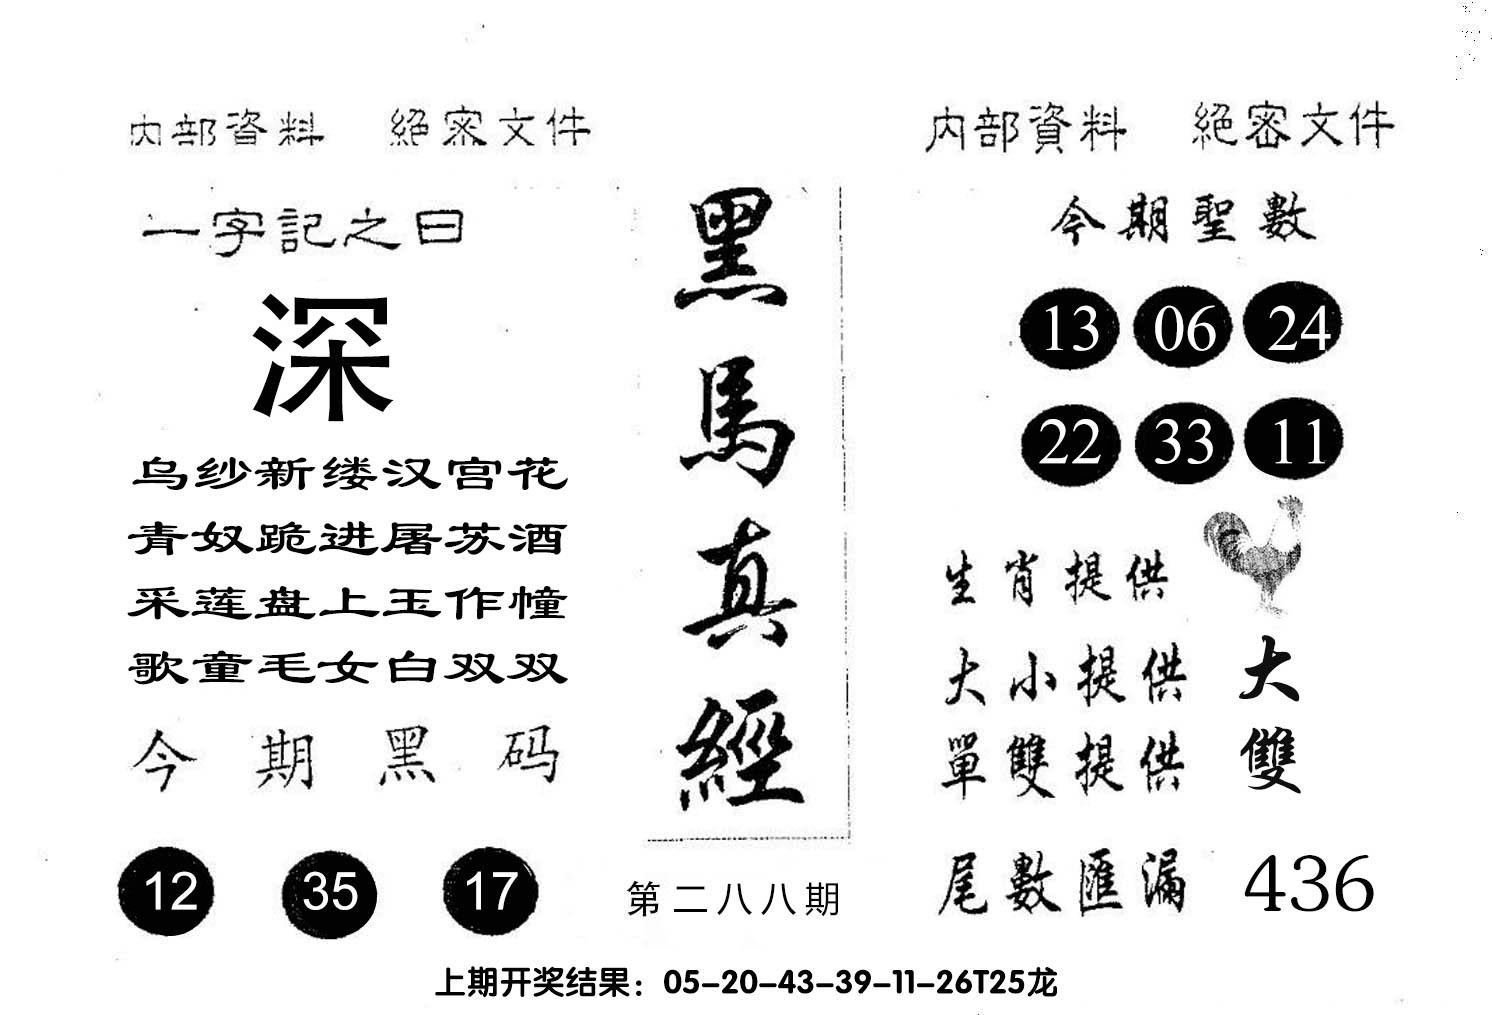 内部資料 絕密文件
一字記之曰
深
乌纱新缕汉宫花
青奴跪进屠苏酒
采莲盘上玉作幢
歌童毛女白双双
今期黑码
12 35 17
黑馬真經
第二八八期
内部資料 絕密文件
今期聖數
13 06 24
22 33 11
生肖提供
大小提供 大
單雙提供 雙
尾數匯漏 436
上期开奖结果：05-20-43-39-11-26T25龙